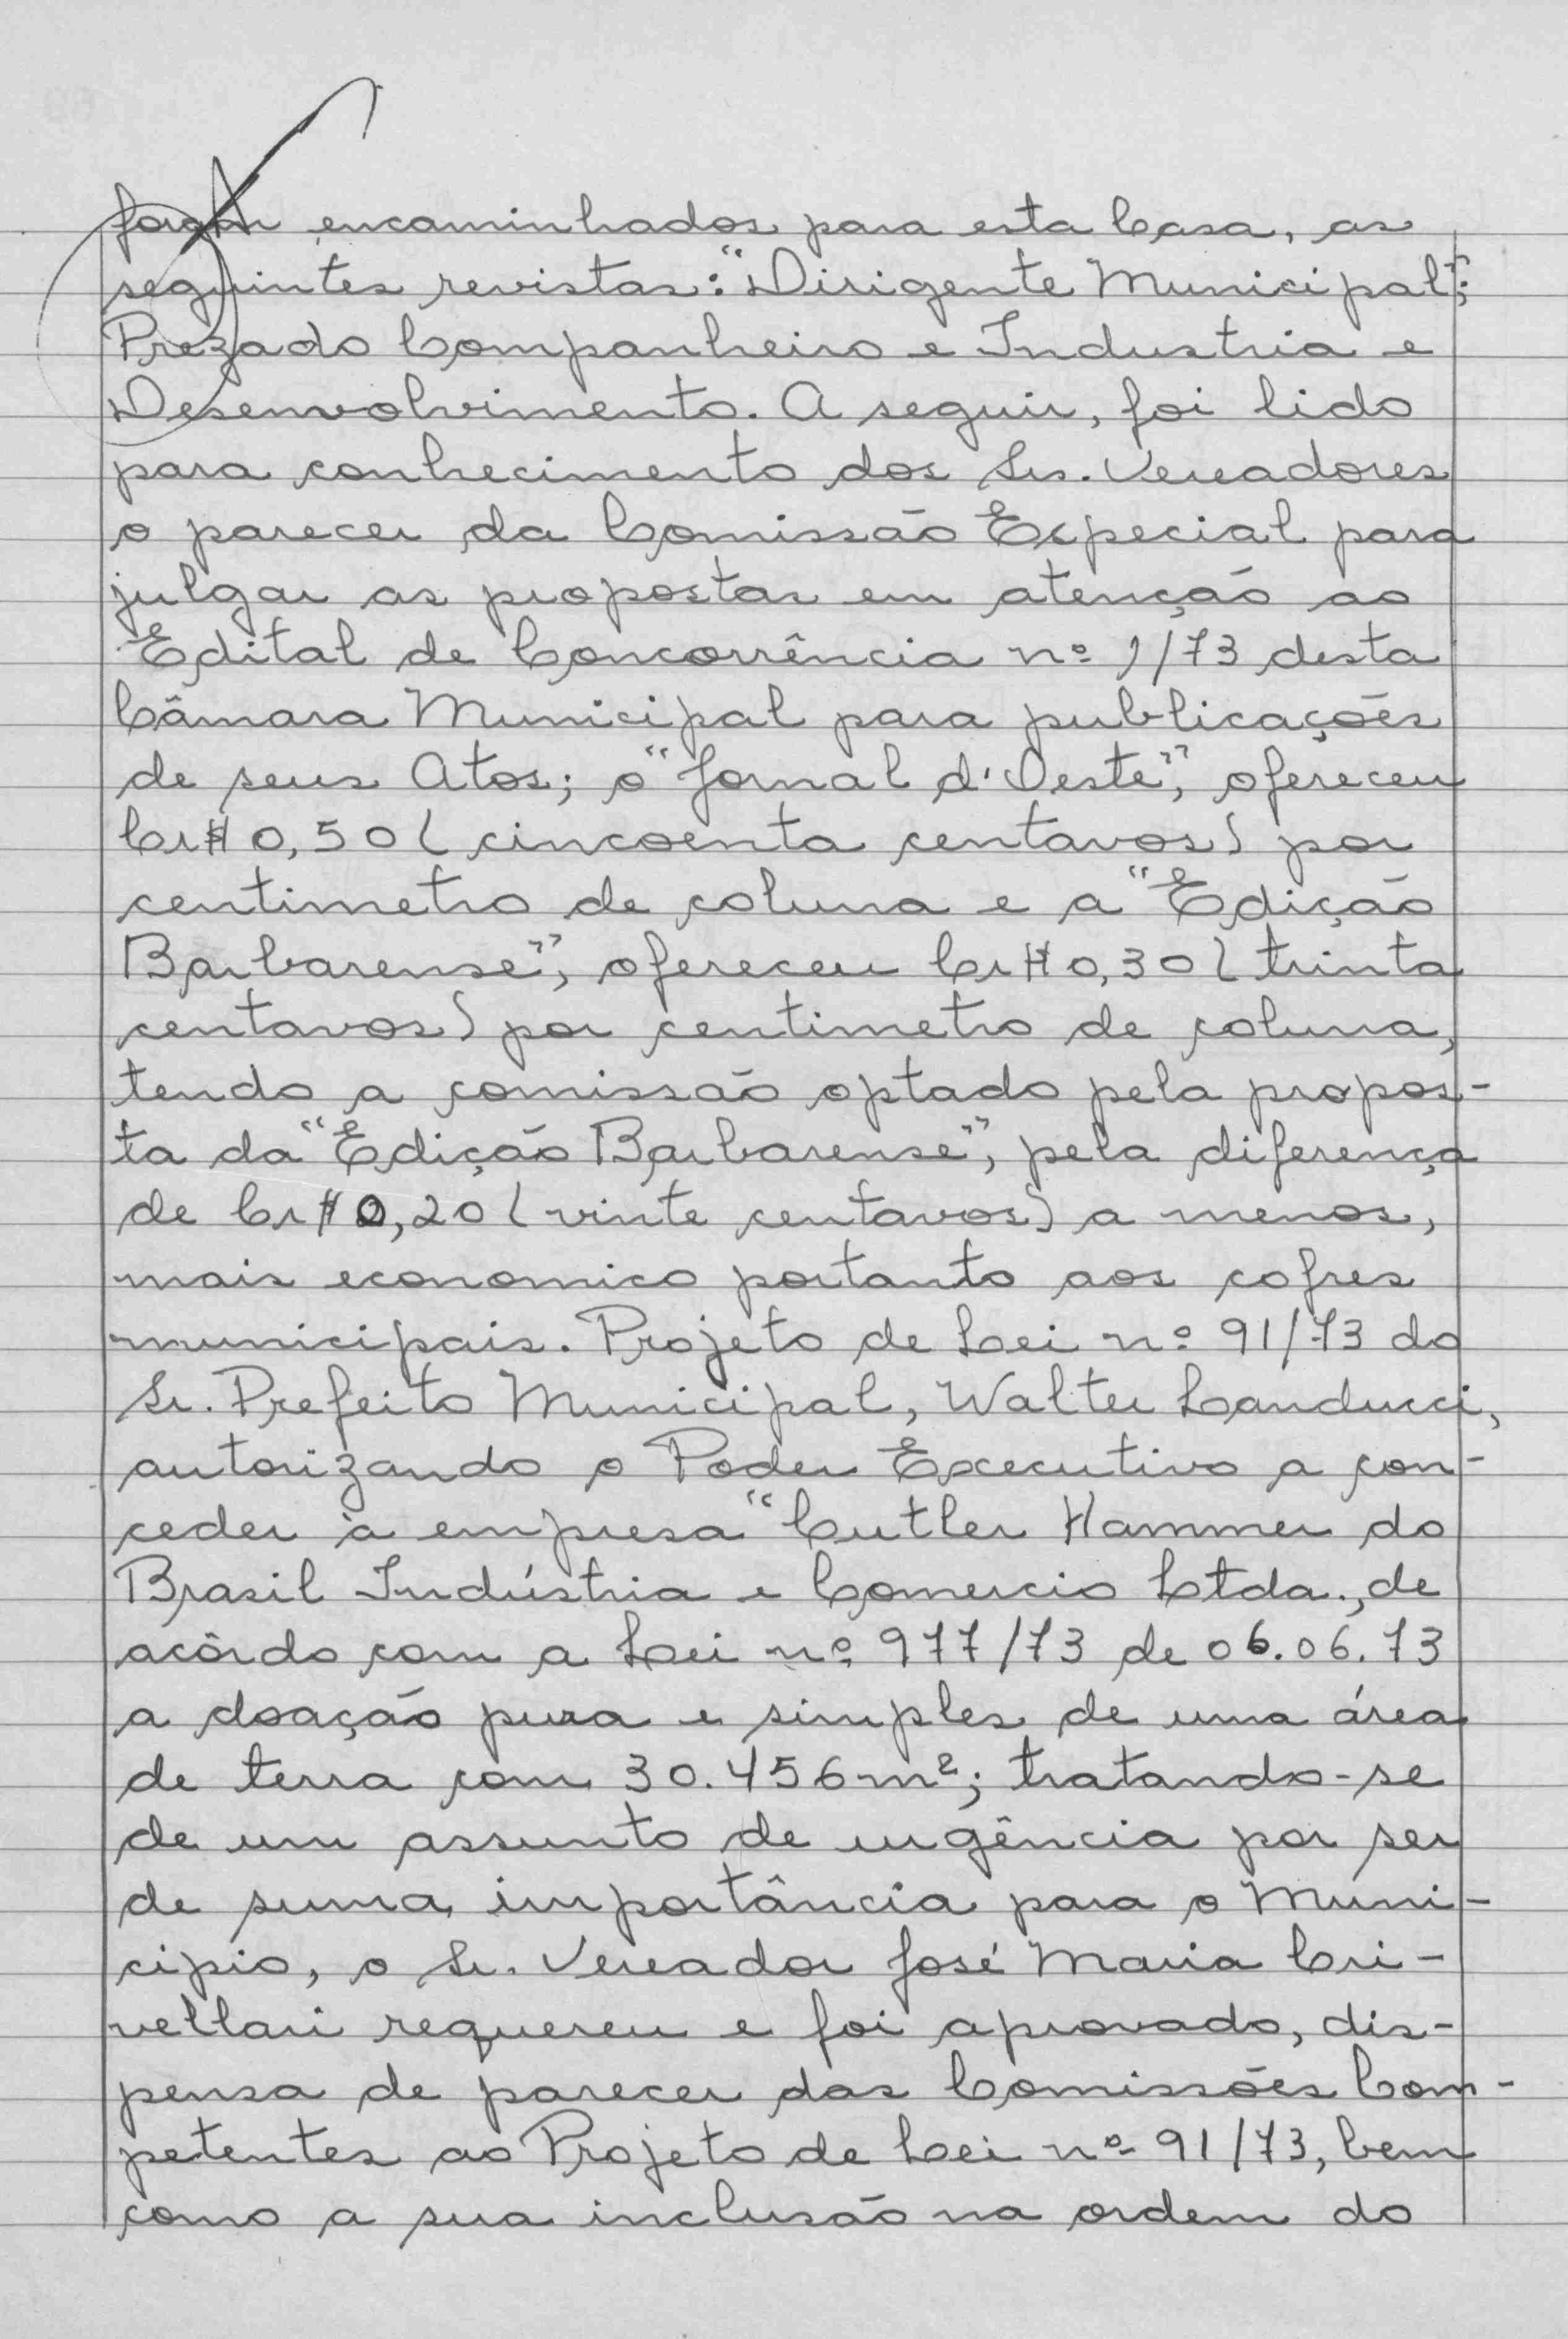 foram encaminhados para esta Casa, as
seguintes revistas: "Dirigente Municipal";
Prezado Companheiro e Industria e
Desenvolvimento. A seguir, foi lido
para conhecimento dos Srs. Vereadores
o parecer da Comissão Especial para
julgar as propostas em atenção ao
Edital de Concorrência nº 1/73 desta
Câmara Municipal para publicações
de seus Atos; o "Jornal d'Oeste", ofereceu
Cr$ 0,50 (cincoenta centavos) por
centimetro de coluna e a "Edição
Barbarense", ofereceu Cr$ 0,30 (trinta
centavos) por centimetro de coluna,
tendo a comissão optado pela propos-
ta da "Edição Barbarense", pela diferença
de Cr$ 0,20 (vinte centavos) a menos,
mais economico portanto aos cofres
municipais. Projeto de Lei nº 91/73 do
Sr. Prefeito Municipal, Walter Landucci,
autorizando o Poder Executivo a con-
ceder à empresa "Cutler Hammer do
Brasil Indústria e Comercio Ltda., de
acôrdo com a Lei nº 977/73 de 06.06.73
a doação pura e simples de uma área
de terra com 30.456m²; tratando-se
de um assunto de urgência por ser
de suma importância para o Muni-
cipio, o Sr. Vereador José Maria Cri-
vellari requereu e foi aprovado, dis-
pensa de parecer das Comissões Com-
petentes ao Projeto de Lei nº 91/73, bem
como a sua inclusão na ordem do